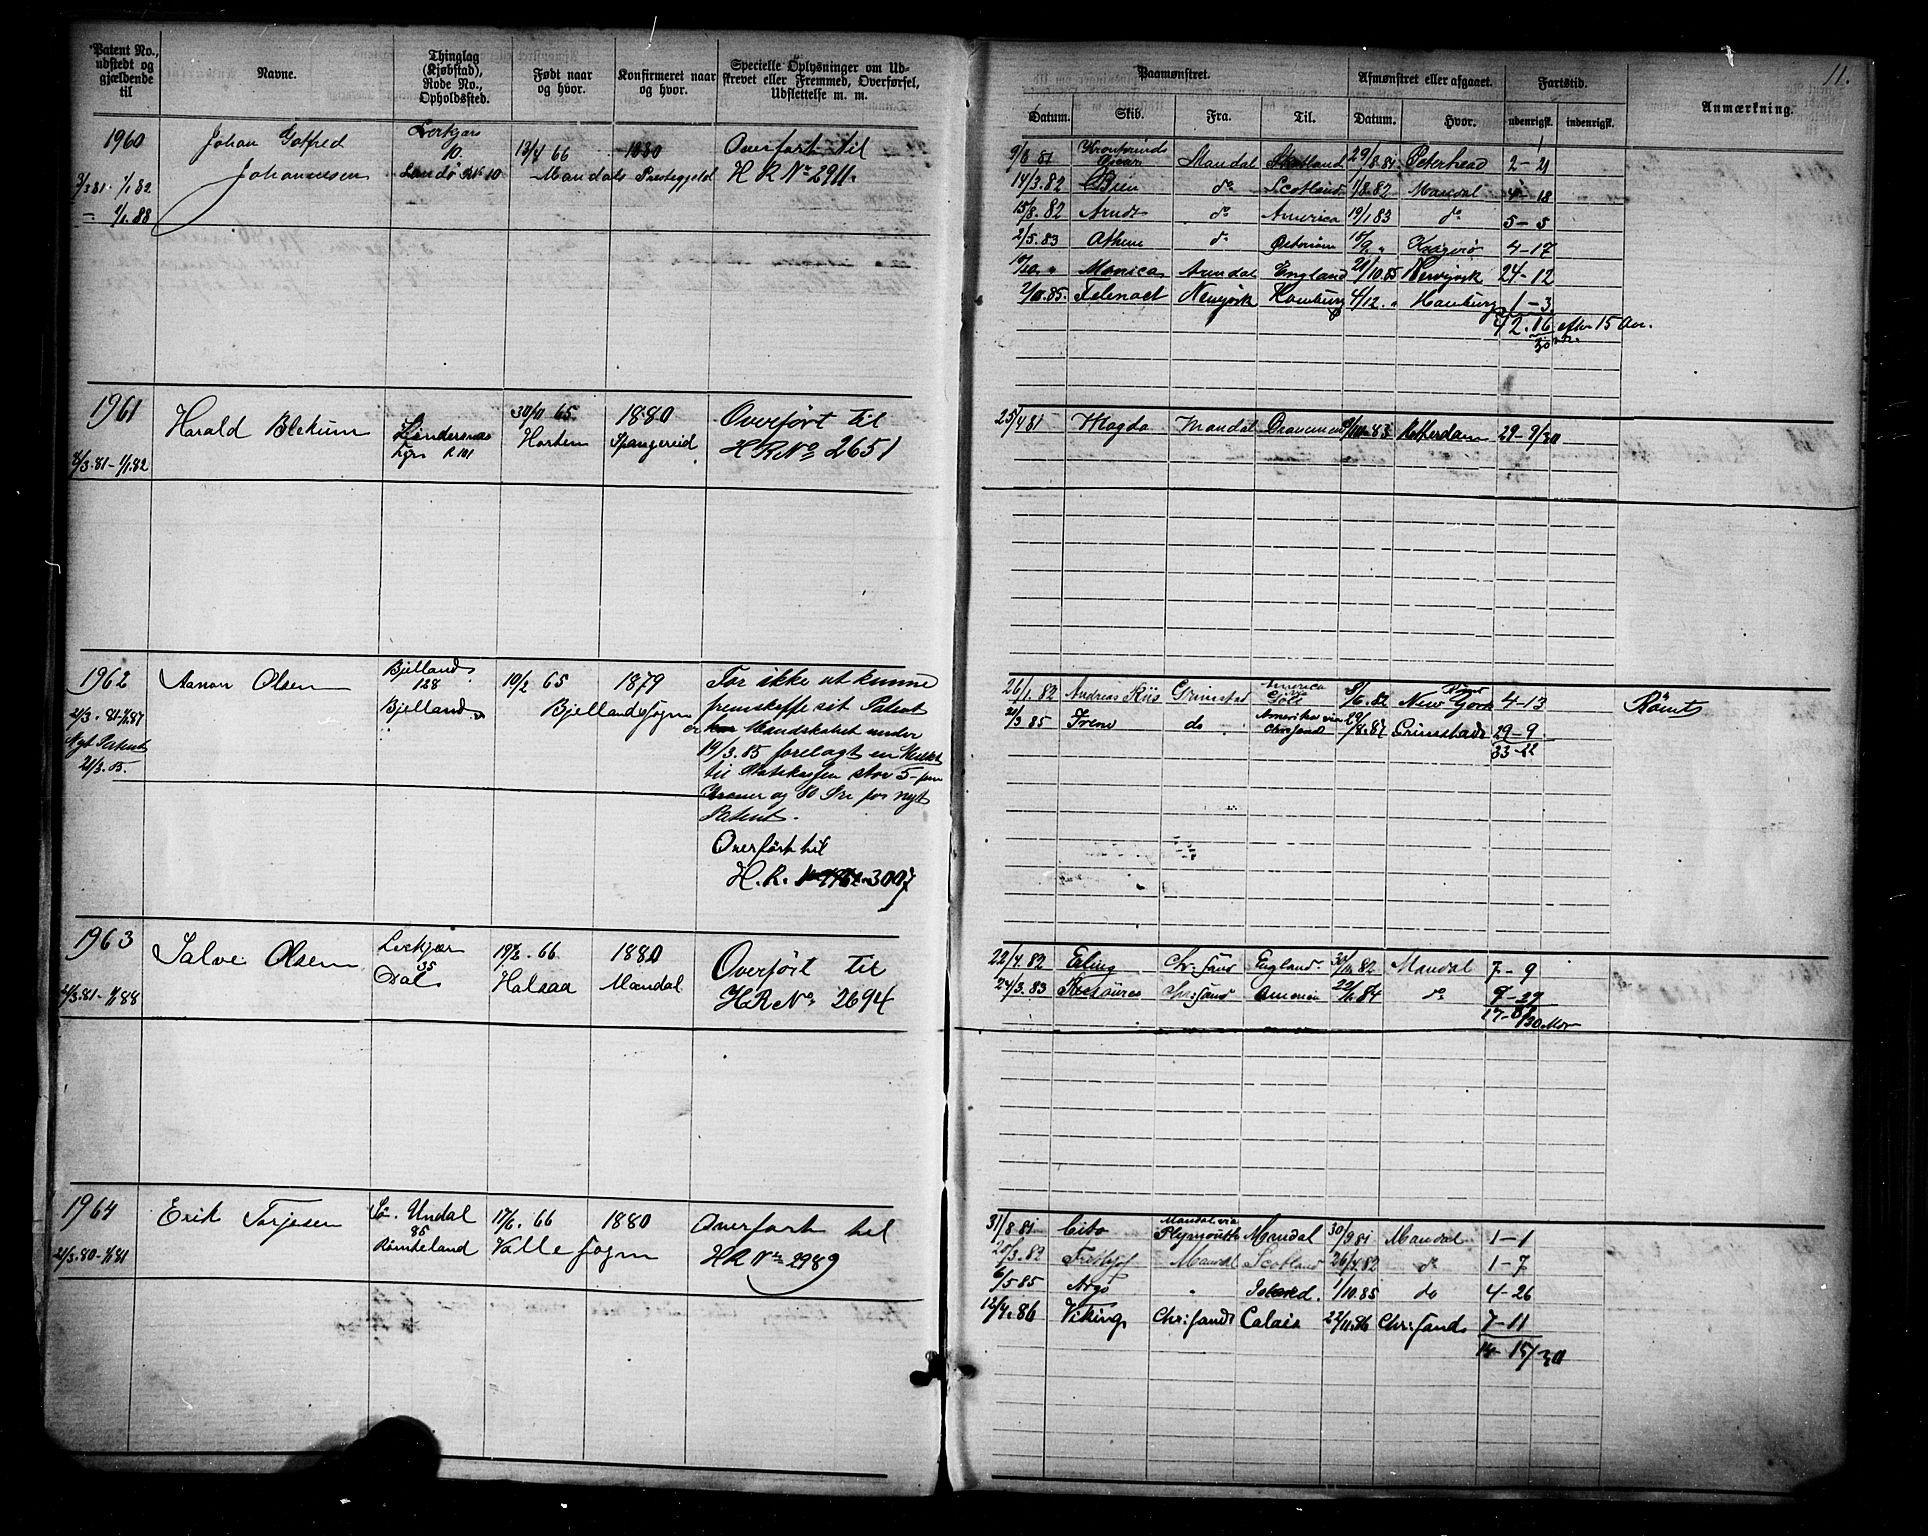 Patent No., udstedt og gjældende til
Navne.
Thinglag (Kjøbstad), Rode No., Opholdssted.
Født naar og hvor.
Konfirmeret naar og hvor.
Specielle Oplysninger om Udskrevet eller Fremmed, Overførsel, Udslettelse m. m.
Paamønstret.
Afmønstret eller afgaaet.
Fartstid.
Anmærkning.
11.
Datum.
Skib.
Fra.
Til.
Datum.
Hvor.
udenrigsk.
indenrigsk.
1960
Johan Gotfred
Johannessen
10.
13/4 66
1880
Mandals Prestegjeld
Overført til
H R No 2911.
3/3 81 - 1/1 82
= 1/1 88
9/6 81 Kronprinds Oscar Mandal Skotland 29/8 81 Peterhead 2-21
14/3.82 Bien do Scotland 1/8 82 Mandal 4-18
15/8.82 Arndt do America 19/1 83 do 5-5
2/5.83 Athene do Kragerø 4-17
Monica Arendal England 21/10.85 Newyork 24-12
Newyork Hamburg 4/12. " Hamburg 1-3
42.16 efter 15 Aar.
30
1961
Harald Blekum
R 101
30/11 65
1880
Spangereid
Overført til
H R No 2651
8/3.81 - 1/1.82
25/4 81 Magda Mandal Drammen Rotterdam 29-9/30
1962
Aanon Olsen
Bjelland
128
Bjelland
10/2 65
1879
Bjellands Sogn
For ikke at kunne
fremskaffe sit Patent
er Mandskabet under
19/3.85 forelagt en Mulkt
til Statskassen stor 5 fem
Kroner og 80 Øre for nyt
Patent.
Overført til
H. R. 3007
Nyt Patent
21/3.85.
26/1.82 Andreas Riis Grimstad America 8/6.82 New York 4-13 Rømt
21/3 85 Irene do Amerika via Chrsand 29/8.87 Grimstad 29-9
33-22
1963
Salve Olsen
35
Dal
66
Halsaa
1880
Mandal
Overført til
H R No 2694
22/4.82 Erling Chr.sand England. 30/11 82 Mandal 7-9
24/3.83 Chr:sand America do 9-29
17-8/30 Mdr
1964
Erik Torjesen
Sø. Undal
85
17/6. 66
1880
Valle Sogn
Overført til
H R No 2989
21/3.80 - 1/1 81
31/8 81 Mandal via Plymouth Mandal 30/9 81 Mandal 1-1
20/3.82 Fridtjof Mandal Scotland 26/4.82 do 1-7
6/5 85 Argo " Island. 1/10.85 do 4-26
12/4.86 Viking Chr:sand Calais 22/11.86 Chr:sand 7-11
14-15/30